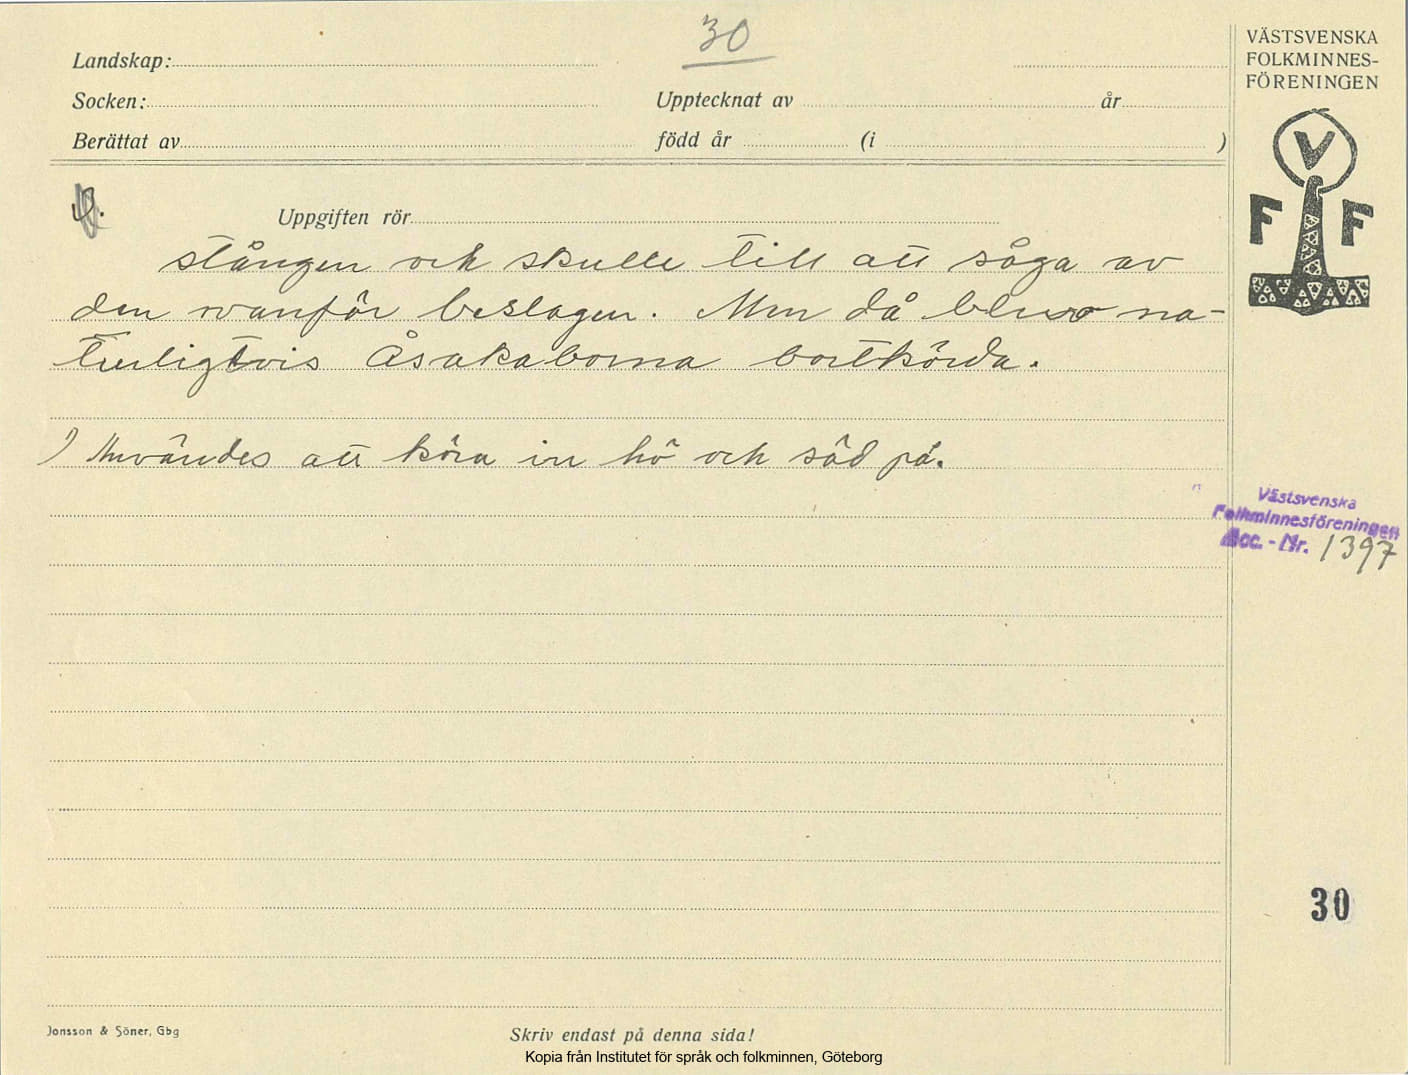 30
Landskap:
Socken:
Upptecknat av år
Berättat av född år (i )
VÄSTSVENSKA
FOLKMINNES-
FÖRENINGEN
V
F F
Uppgiften rör
stången och skulle till att såga av
den ovanför beslagen. Men då blevo na-
turligtvis Åsakaborna bortkörda.
) Användes att köra in hö och säd på.
Västsvenska
Folkminnesföreningen
Acc. - Nr. 1397
30
Jonsson & Söner, Gbg
Skriv endast på denna sida!
Kopia från Institutet för språk och folkminnen, Göteborg